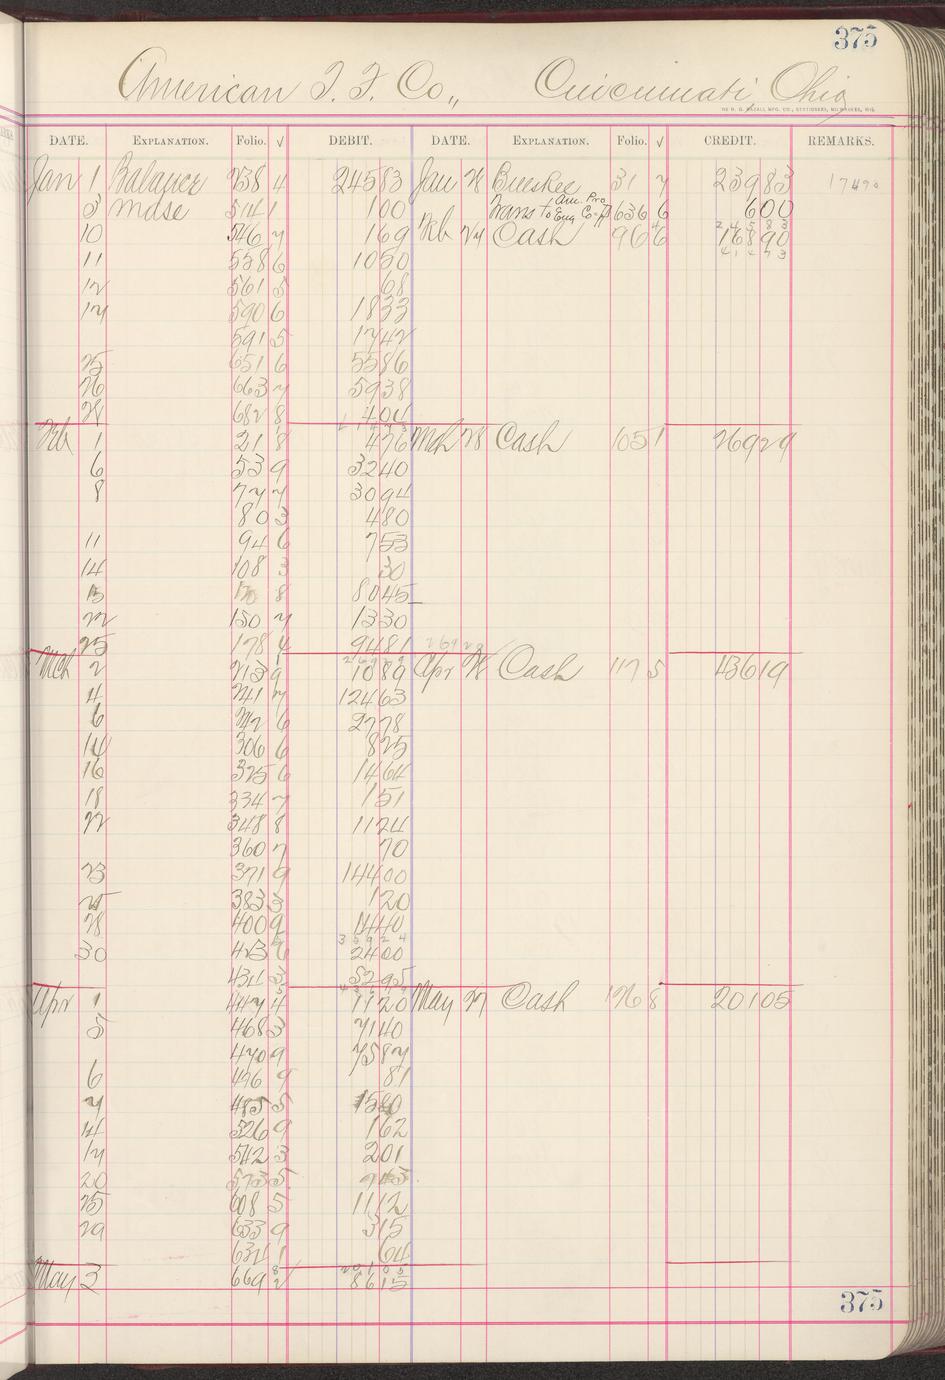 375
American T. F. Co., Cincinnati Ohio
DATE. EXPLANATION. Folio. √ DEBIT. DATE. EXPLANATION. Folio. √ CREDIT. REMARKS.
Jan 1 Balance 238 4 24583 Jan 28 31 7 23983 17490
3 Mdse 514 1 100 Trans to Am. Pro Eng Co 636 6 600
10 546 7 169 Feb 24 Cash 96 6 16890
11 558 6 1050
12 561 5 68
17 590 6 1833
591 5 1742
25 651 6 5586
26 663 7 5938
28 682 8 404
Feb 1 21 8 476 Mch 28 Cash 105 1 26929
6 53 9 3240
8 77 7 3094
80 3 480
11 94 6 753
14 108 3 30
15 8 8045
22 150 7 1330
25 178 4 9481
Mch 2 213 9 1089 Apr 28 Cash 117 5 43619
4 241 7 12463
6 242 6 2778
14 306 6 825
16 325 6 1464
18 334 7 151
22 348 8 1124
360 7 70
23 371 9 14400
25 383 3 120
28 400 9 1440
30 423 6 2400
431 3 5295
Apr 1 447 4 1120 May 27 Cash 126 8 20105
5 468 3 7140
470 9 7587
6 496 9 81
7 485 5 1580
14 526 9 162
17 542 3 201
20 573 5
25 608 5 1112
29 633 9 315
634 1 64
May 3 669 2 8615
375